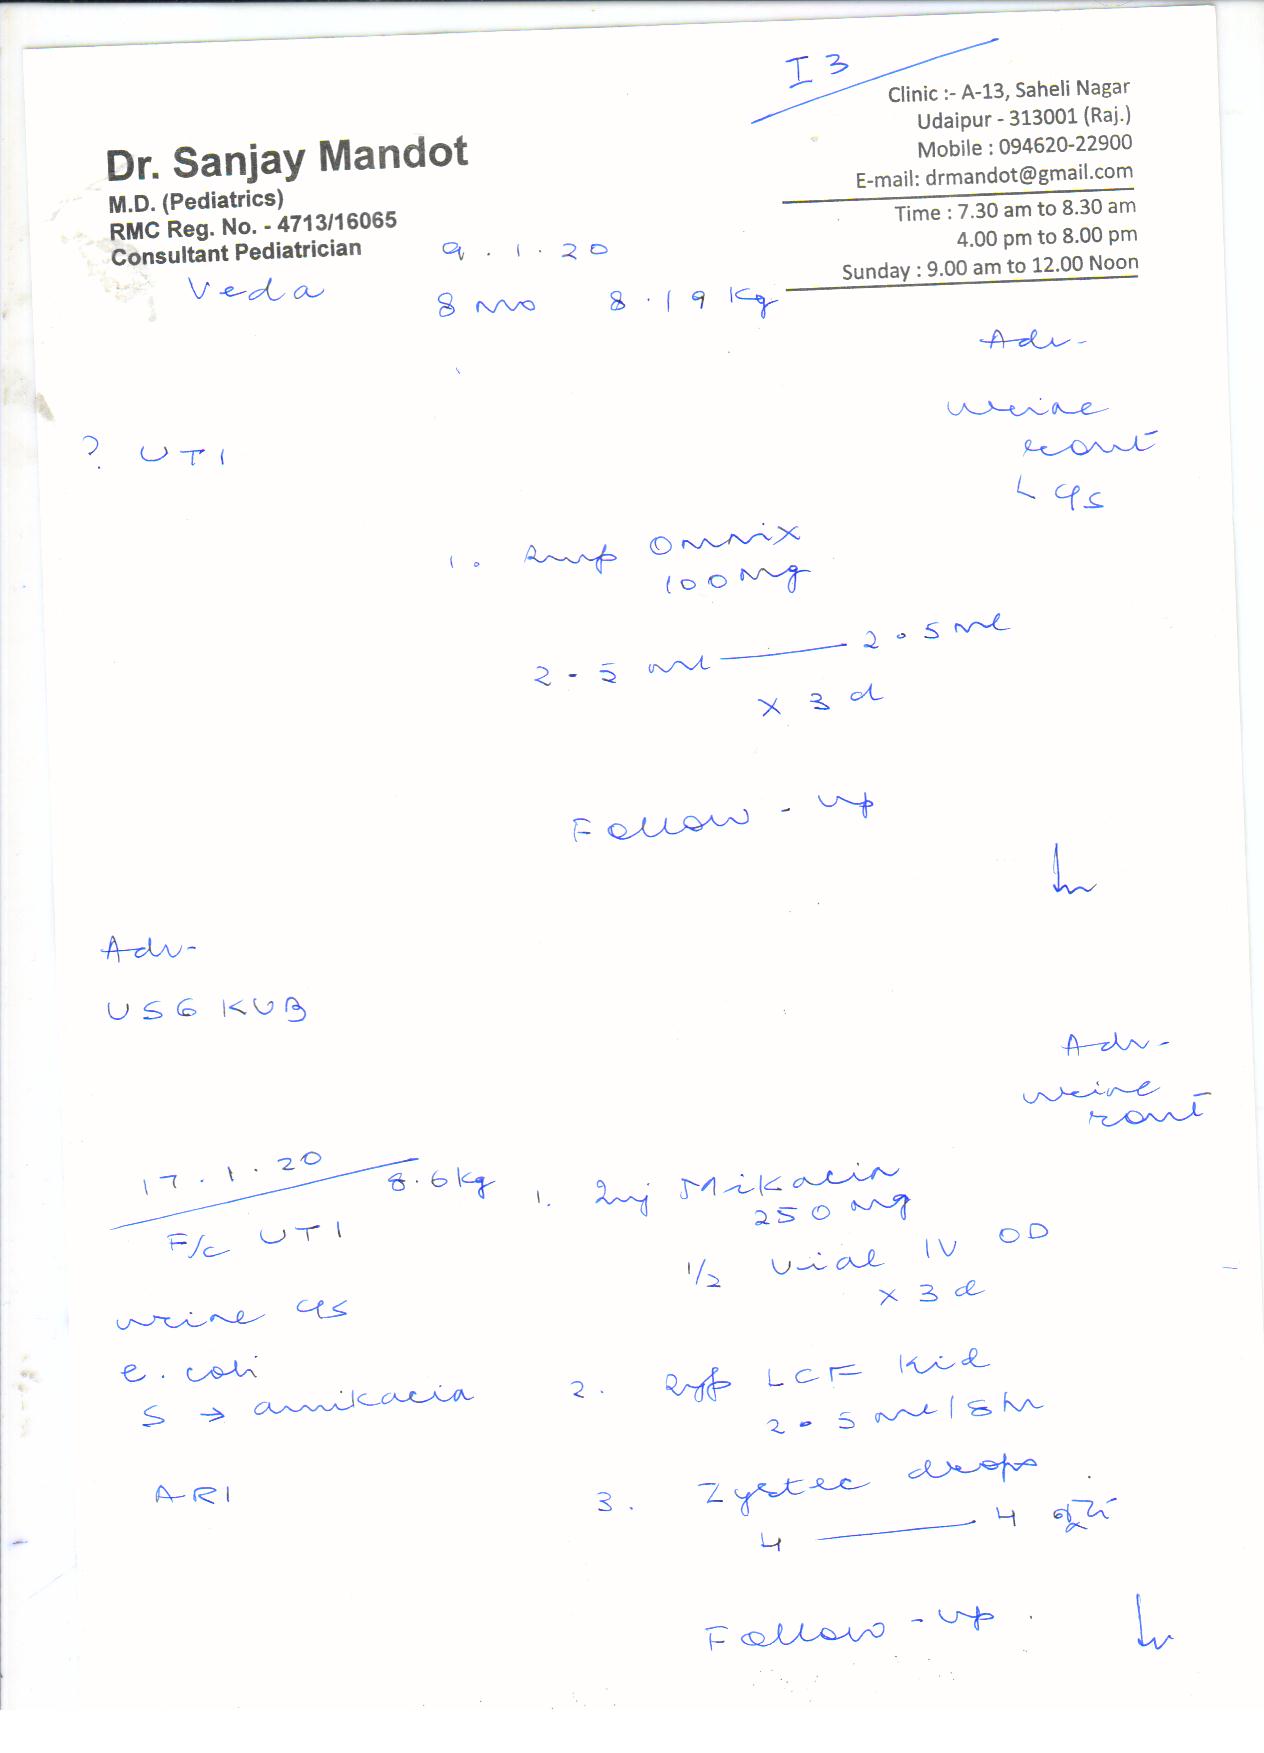 I 3
Clinic :- A-13, Saheli Nagar
Udaipur - 313001 (Raj.)
Mobile : 094620-22900
E-mail: drmandot@gmail.com
Time : 7.30 am to 8.30 am
4.00 pm to 8.00 pm
Sunday : 9.00 am to 12.00 Noon
Dr. Sanjay Mandot
M.D. (Pediatrics)
RMC Reg. No. - 4713/16065
Consultant Pediatrician
9.1.20
Veda 8 mo 8.19 Kg
Adv-
urine
rout
? UTI
L C/S
1. Syp Omnix
100 mg
2.5 ml — 2.5 ml
x 3 d
Follow-up
Adv-
USG KUB
Adv-
urine
rout
17.1.20
8.6 kg
F/c UTI
urine C/S
e. coli
S → amikacin
ARI
1. Inj Mikacin
250 mg
1/2 vial IV OD
x 3 d
2. Syp LCF Kid
2.5 ml/8hr
3. Zyrtec drops
4 — 4
Follow-up